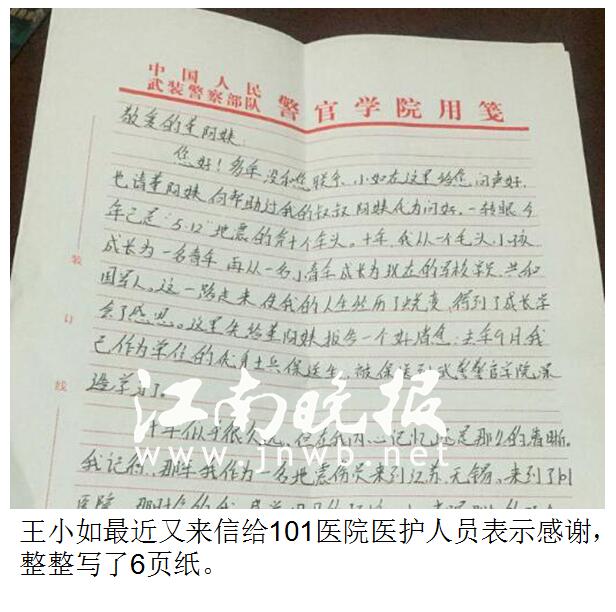 中国人民
武装警察部队 警官学院用笺
敬爱的董阿姨:
您好!多年没和您联系,小如在这里给您问声好,
也请董阿姨向帮助过我的叔叔阿姨代为问好。一转眼今
年已是"5.12"地震的第十个年头。十年,我从一个毛头小孩
成长为一名青年,再从一名小青年成长为现在的军校学员、共和
国军人。这一路走来,使我的人生经历了蜕变,得到了成长学
会了感恩。这里先给董阿姨报告一个好消息:去年9月我
已作为单位的优秀士兵保送生,被保送到武警警官学院深
造学习了。
十年似乎很久远,但在我内心记忆还是那么的清晰。
我记得,那年我作为一名地震伤员来到江苏无锡,来到了101
医院,那时
装
订
线
江南晚报
www.jnwb.net
王小如最近又来信给101医院医护人员表示感谢,
整整写了6页纸。